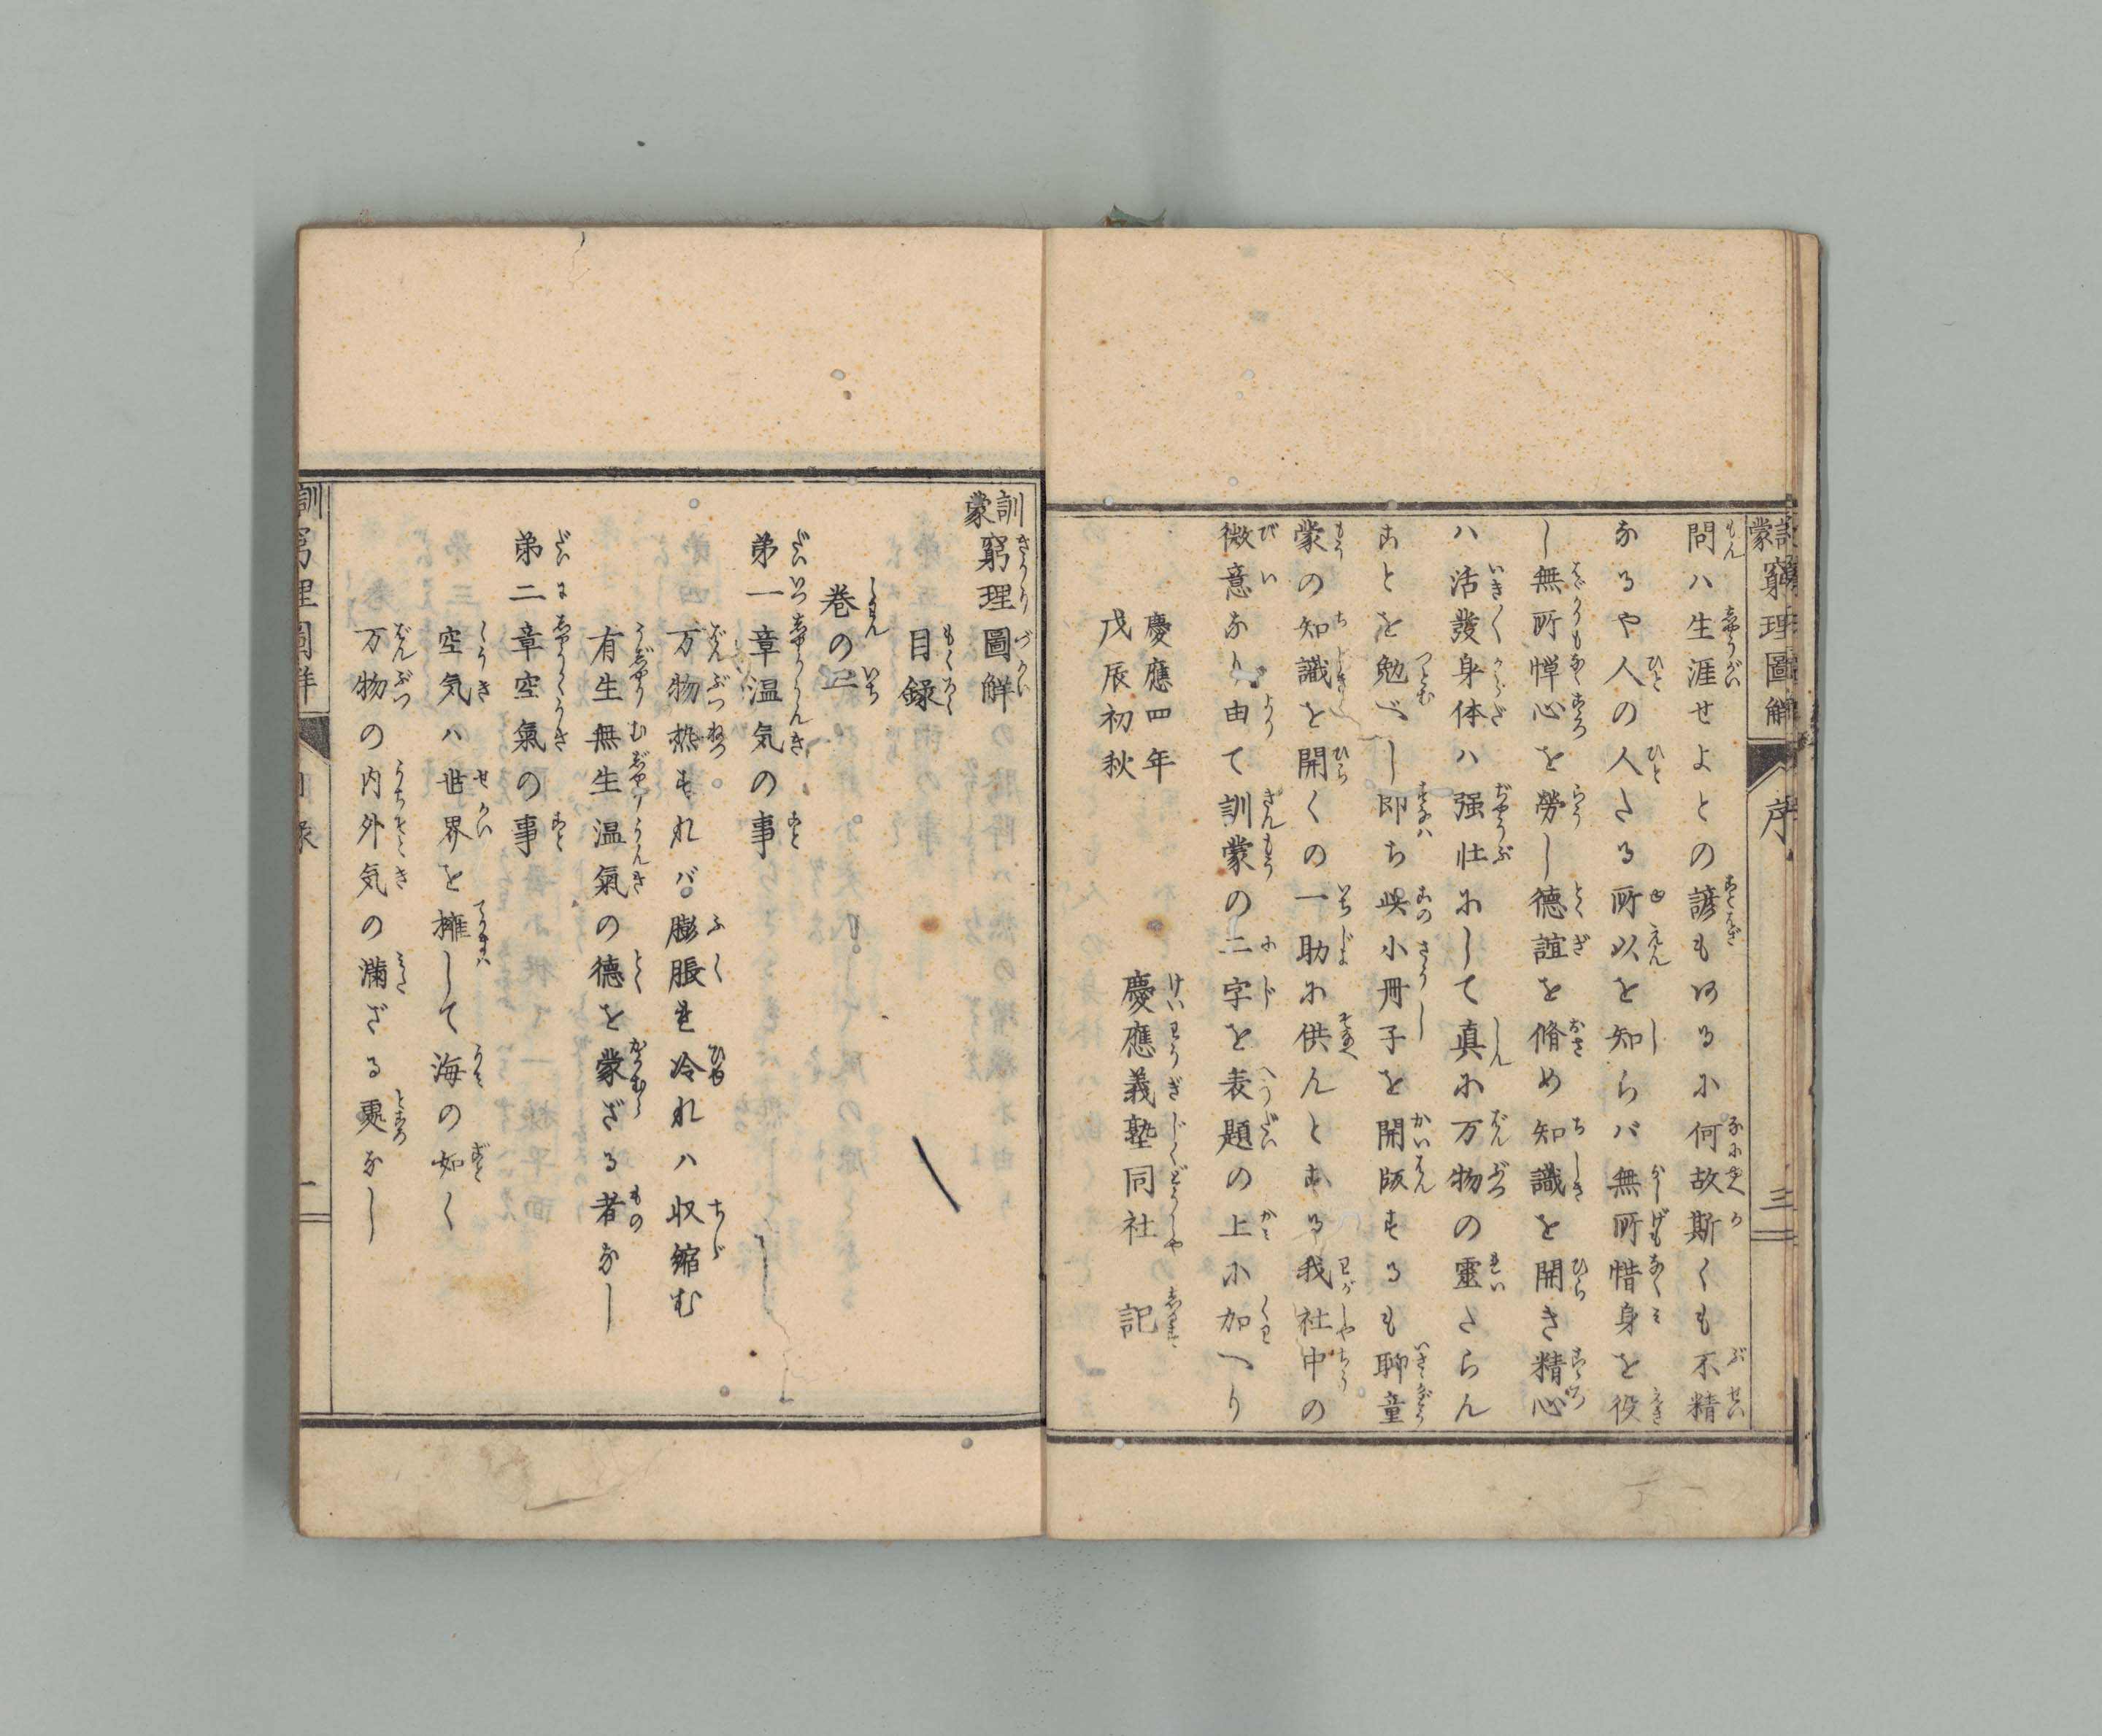 訓蒙 窮理圖解 序 三
問ハ生涯せよとの諺もあるに何故斯くも不精
なるや人の人たる所以を知らバ無所惜身を役
し無所憚心を勞し徳誼を脩め知識を開き精心
ハ活潑身体ハ强壮にして真に万物の靈たらん
ことを勉べし即ち此小冊子を開版するも聊童
蒙の知識を開くの一助に供んとする我社中の
微意なり由て訓蒙の二字を表題の上に加へり
慶應四年
戊辰初秋
慶應義塾同社 記
訓蒙 窮理圖解
目録
巻の一
第一章温気の事
万物熱すれバ膨脹し冷れハ収縮む
有生無生温氣の德を蒙ざる者なし
第二章空氣の事
空気ハ世界を擁して海の如く
万物の内外気の滿ざる處なし
訓 窮理圖解 目録 一